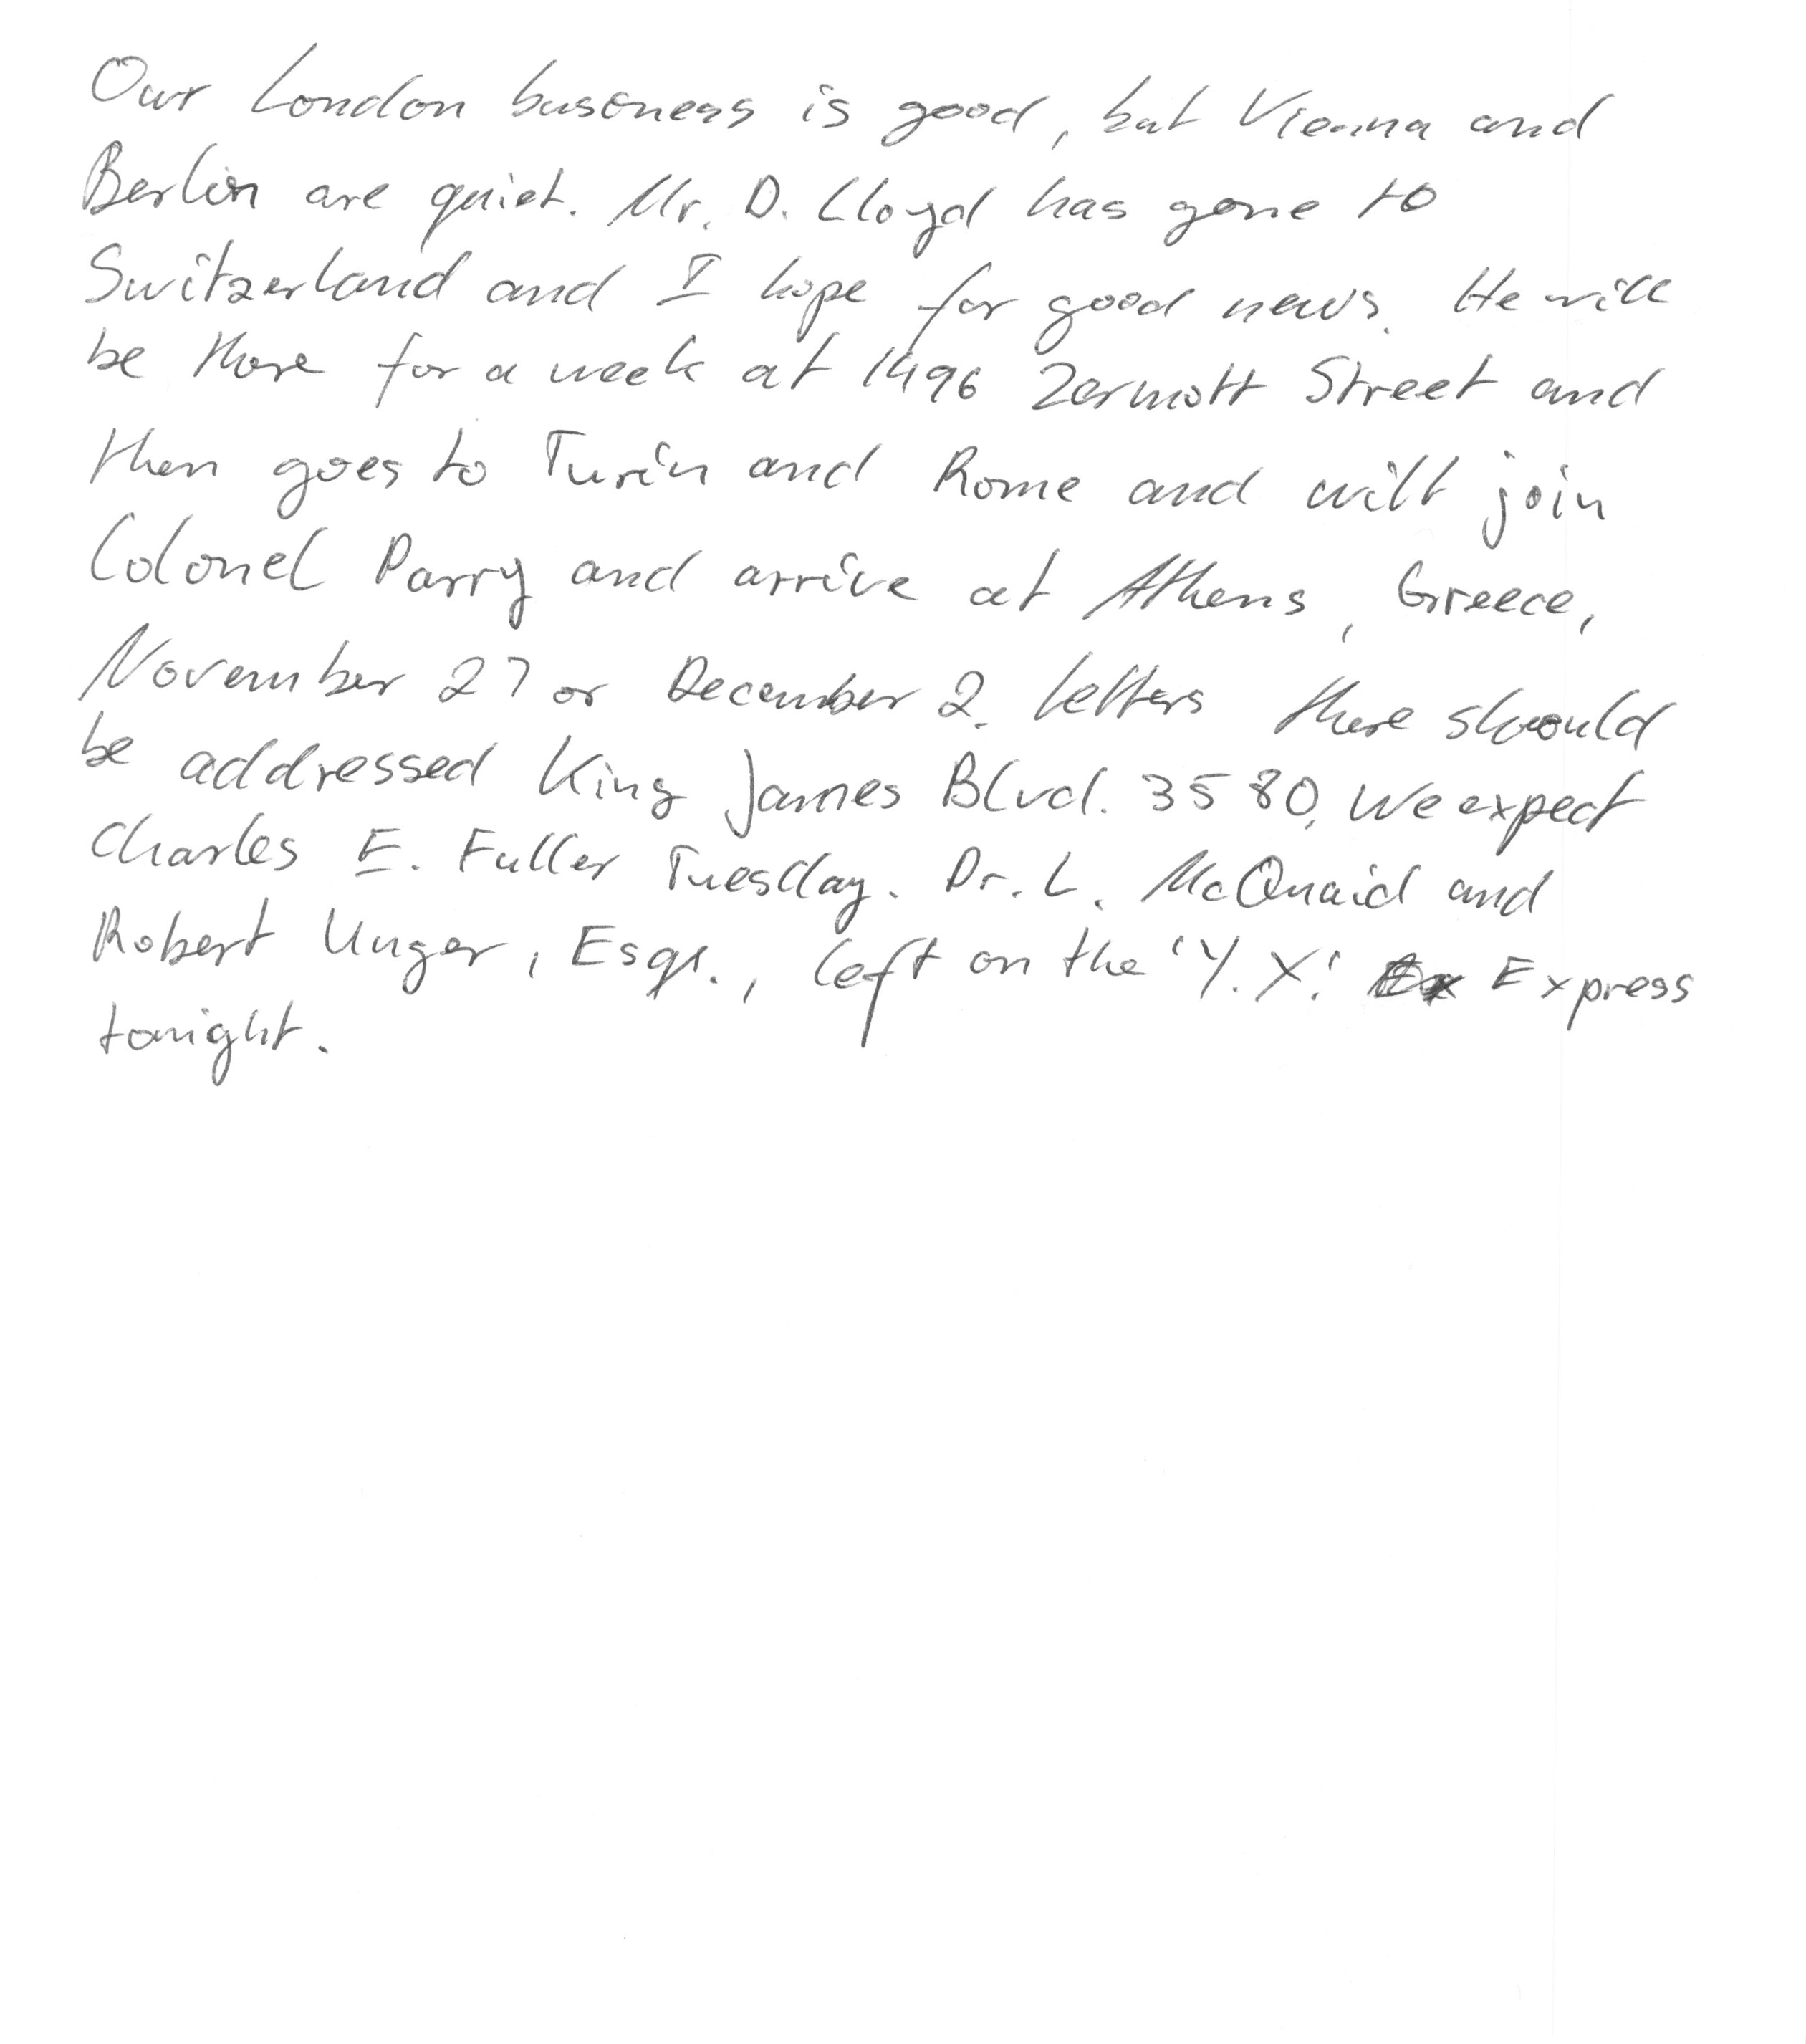 Our London business is good, but Vienna and
Berlin are quiet. Mr. D. Lloyd has gone to
Switzerland and I hope for good news. He will
be there for a week at 1496 Zermott Street and
then goes to Turin and Rome and will join
Colonel Parry and arrive at Athens, Greece,
November 27 or December 2. Letters there should
be addressed King James Blvd. 3580. We expect
Charles E. Fuller Tuesday. Dr. L. McQuaid and
Robert Unger, Esqr., left on the 'Y.X.' Express
tonight.